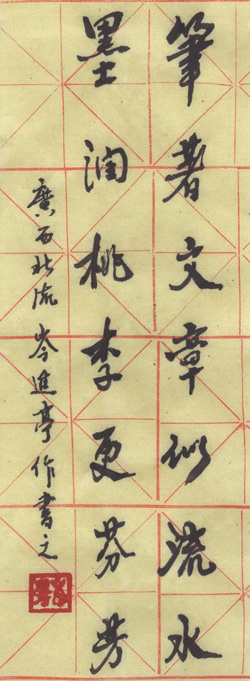 筆著文章似流水
墨润桃李更芬芳
廣西北流岑進亭作書之